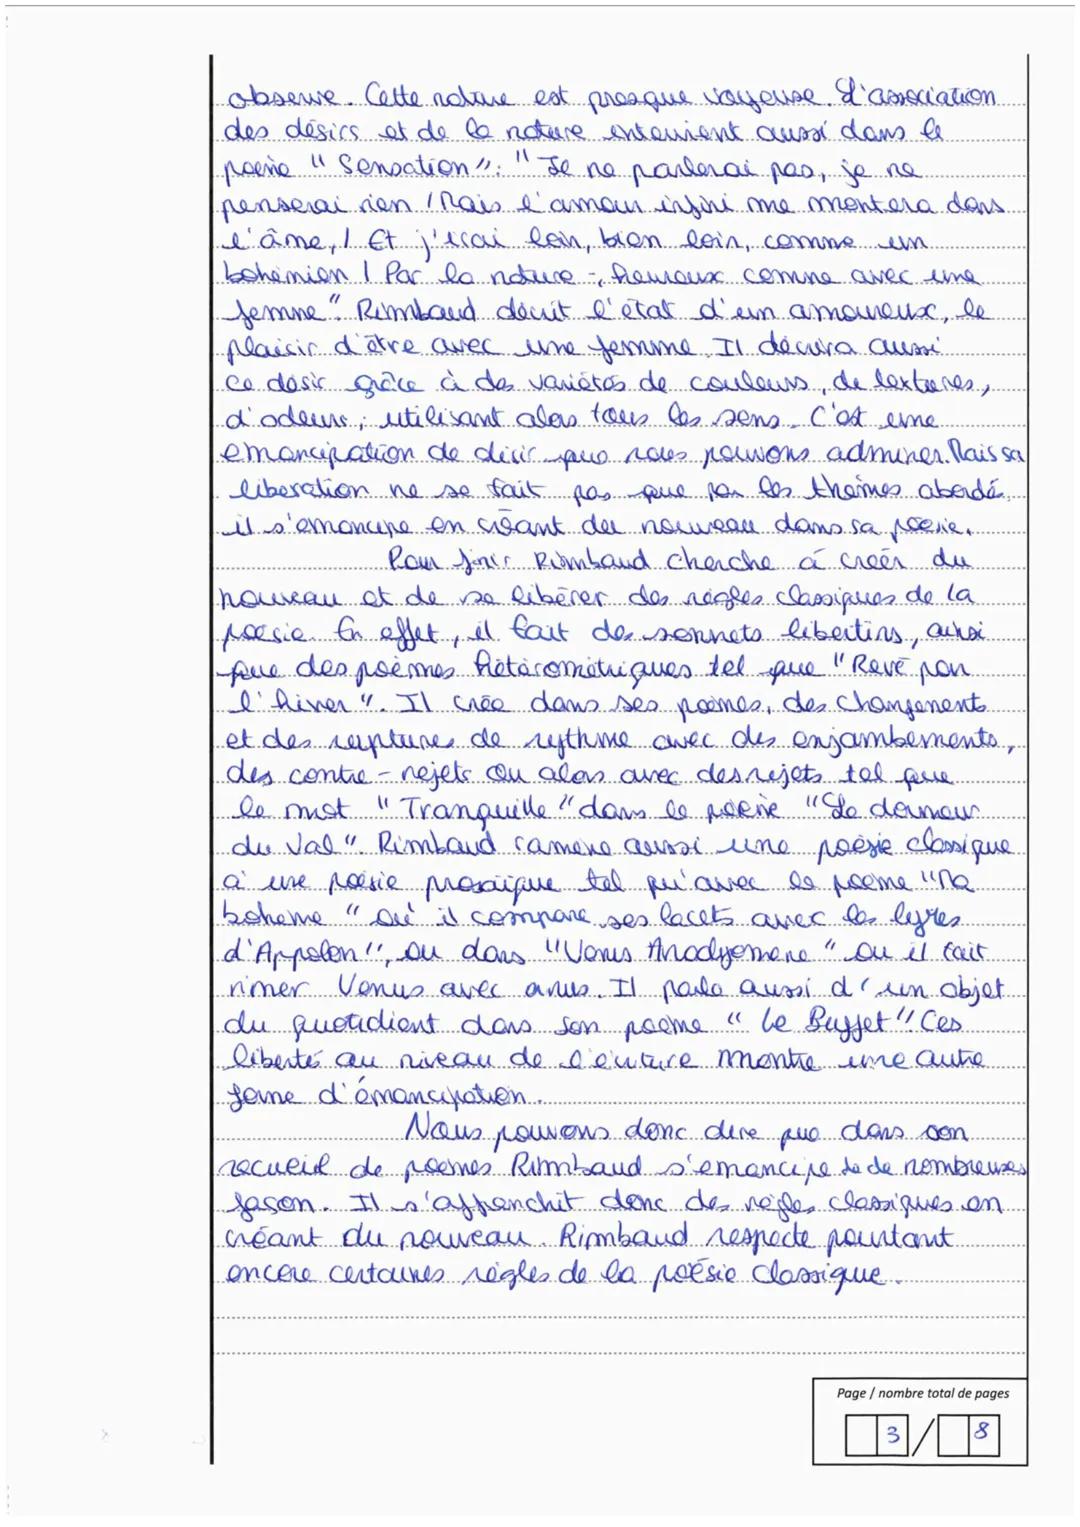 observe. Cette nature est presque voyeuse. L'association
des désirs et de la nature intervient aussi dans le
poème " Sensation ": " Je ne parlerai pas, je ne
penserai rien / Mais l'amour infini me montera dans
l'âme, / Et j'irai loin, bien loin, comme un
bohémien / Par la nature -, heureux comme avec une
femme ". Rimbaud décrit l'état d'un amoureux, le
plaisir d'être avec une femme. Il décrira aussi
ce désir grâce à des variétés de couleurs, de textures,
d'odeurs ; utilisant alors tous les sens. C'est une
emancipation de désir que nous pouvons admirer. Mais sa
libération ne se fait pas que par les thèmes abordé,
il s'émancipe en créant du nouveau dans sa poésie.
Pour finir Rimbaud cherche á creér du
nouveau et de se libérer des règles classiques de la
poésie. En effet, il fait des sonnets libertins, ainsi
que des poèmes hétérométriques tel que " Revé pour
l'hiver ". Il crée dans ses poèmes, des changements
et des ruptures de rythme avec des enjambements,
des contre-rejets ou alors avec des rejets tel que
le mot " Tranquille " dans le poème " Le dormeur
du Val ". Rimbaud ramene aussi une poésie classique
à une poésie prosaïque tel qu'avec le poeme " Ma
boheme " où il compare ses lacets avec les lyres
d'Appolon ", ou dans " Venus Anadyomene " ou il fait
rimer Venus avec anus. Il parle aussi d'un objet
du quotidient dans son poeme " Le Buffet " Ces
libertés au niveau de l'écriture montre une autre
forme d'émancipation.
Nous pouvons donc dire que dans son
recueil de poemes Rimbaud s'emancipe de nombreuses
façon. Il s'affranchit donc des règles classiques en
créant du nouveau. Rimbaud respecte pourtant
encore certaines règles de la poésie classique.
Page / nombre total de pages
3 / 8